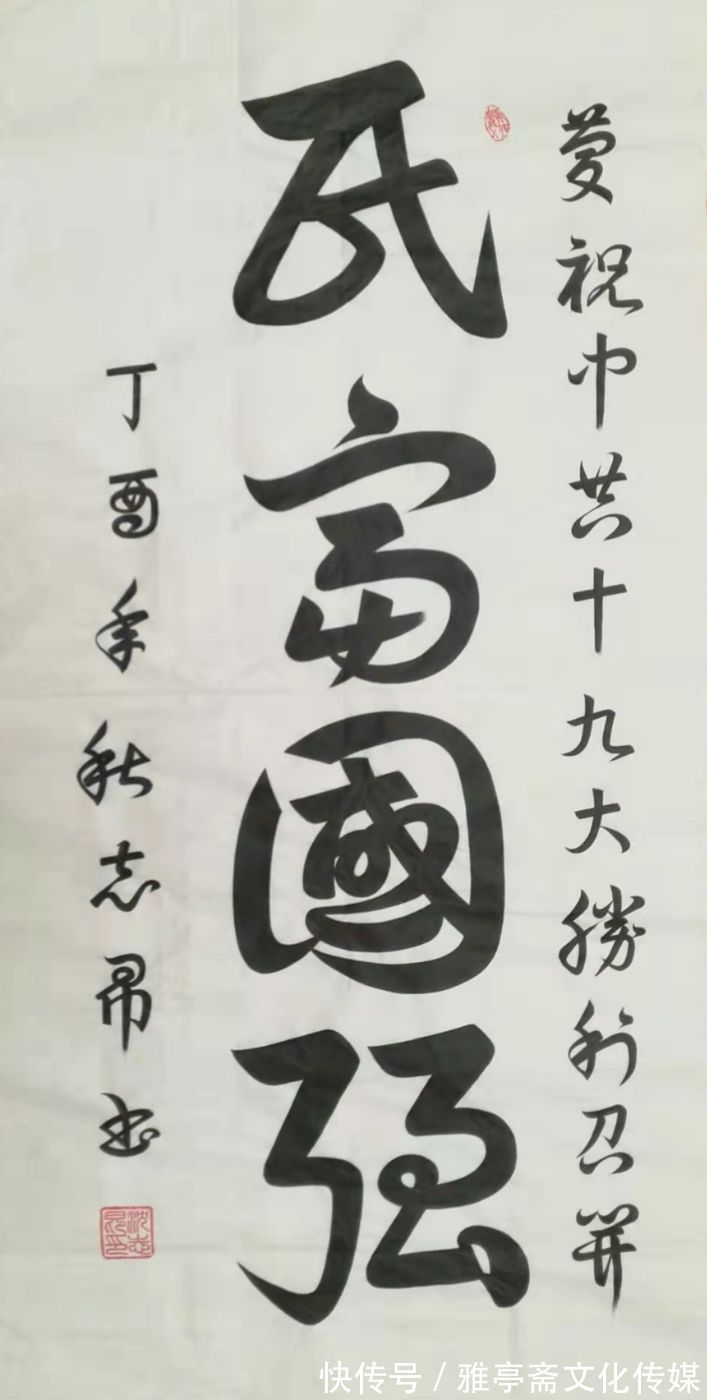 慶祝中共十九大勝利召開
民富國强
丁酉年秋志昂書
沈志昂印
快传号 / 雅亭斋文化传媒